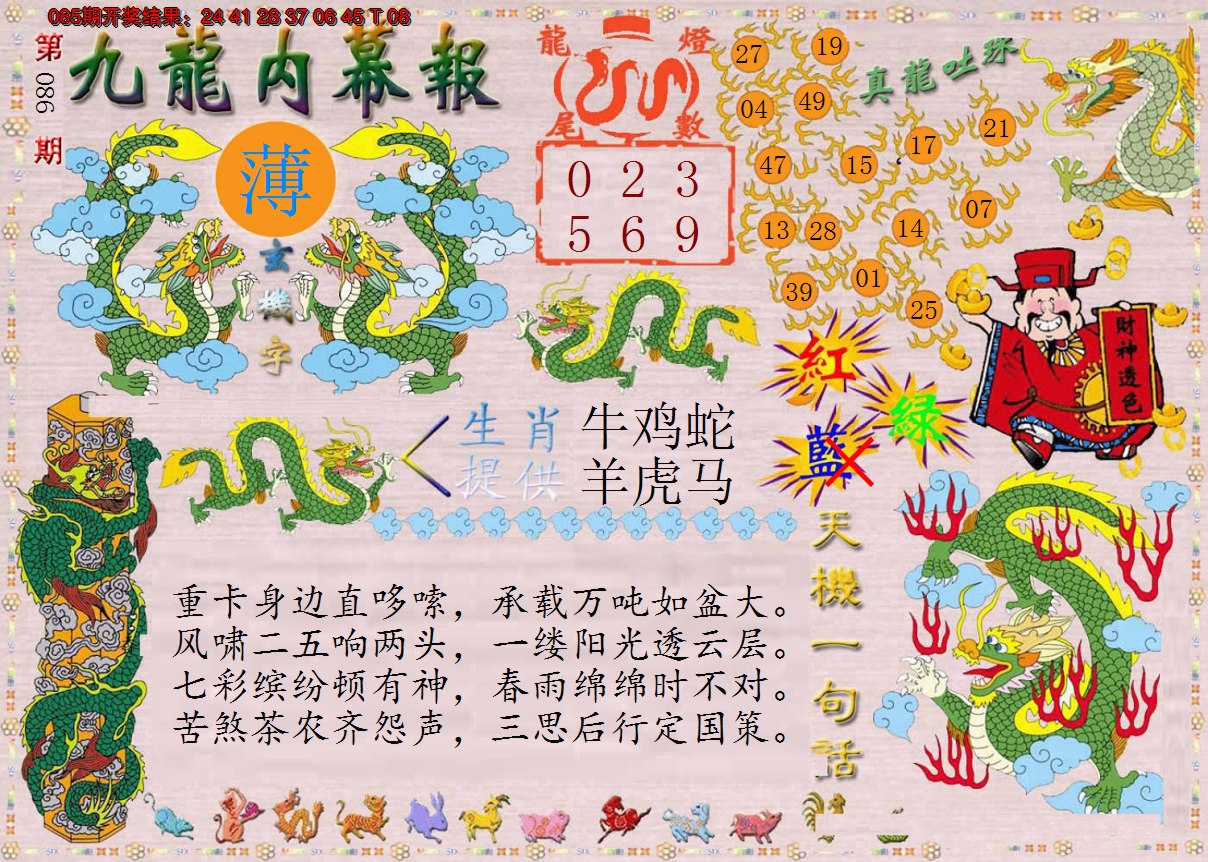 085期开奖结果：24 41 28 37 06 45 T 08
第086期
九龍内幕報
薄
玄機字
龍燈
尾數
0 2 3
5 6 9
真龍吐珠
27
19
04
49
47
15
17
21
13
28
14
07
39
01
25
紅
綠
藍
財神透色
生肖提供
牛鸡蛇
羊虎马
重卡身边直哆嗦，承载万吨如盆大。
风啸二五响两头，一缕阳光透云层。
七彩缤纷顿有神，春雨绵绵时不对。
苦煞茶农齐怨声，三思后行定国策。
天機一句話